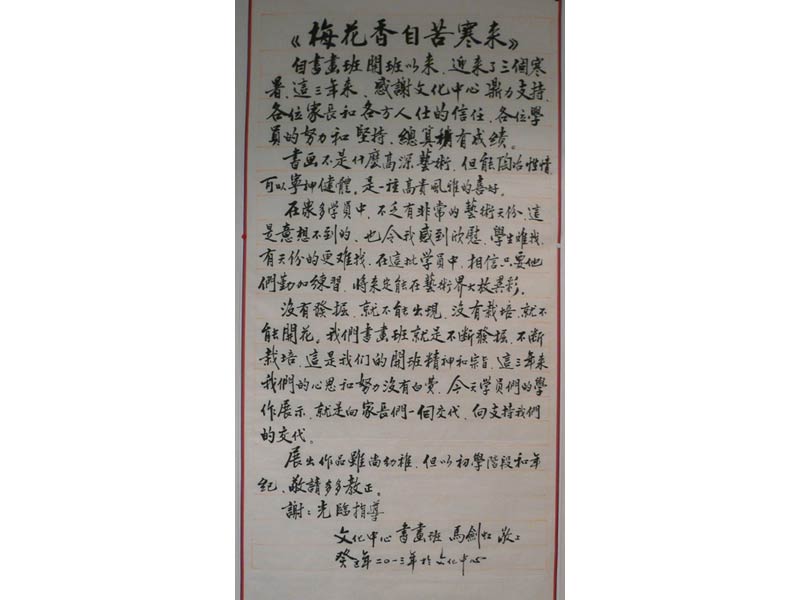 《梅花香自苦寒来》
自書畫班開班以来、近来了三個寒
暑、這三年来、感謝文化中心鼎力支持、
各位家長和各方人仕的信任、各位學
員的努力和堅持、總算積有成績。
書画不是什麽高深藝術、但能陶冶性情
可以寧神健體、是一種高貴風雅的喜好。
在眾多学員中、不乏有非常的藝術天份、這
是意想不到的、也令我感到欣慰、學生难找、
有天份的更难找、在這批学員中、相信只要他
們勤加練習、將来定能在藝術界大放異彩。
沒有發掘、就不能出現、沒有栽培、就不
能開花、我們書畫班就是不斷發掘、不斷
栽培、這是我们的開班精神和宗旨、這三年来
我們的心思和努力沒有白費、今天学員們的學
作展示、就是向家長們一個交代、向支持我們
的交代。
展出作品雖尚幼稚、但以初學階段和年
纪、敬請多多教正。
謝：光臨指導
文化中心書畫班 馬劍虹 敬上
癸巳年二〇一三年於文化中心